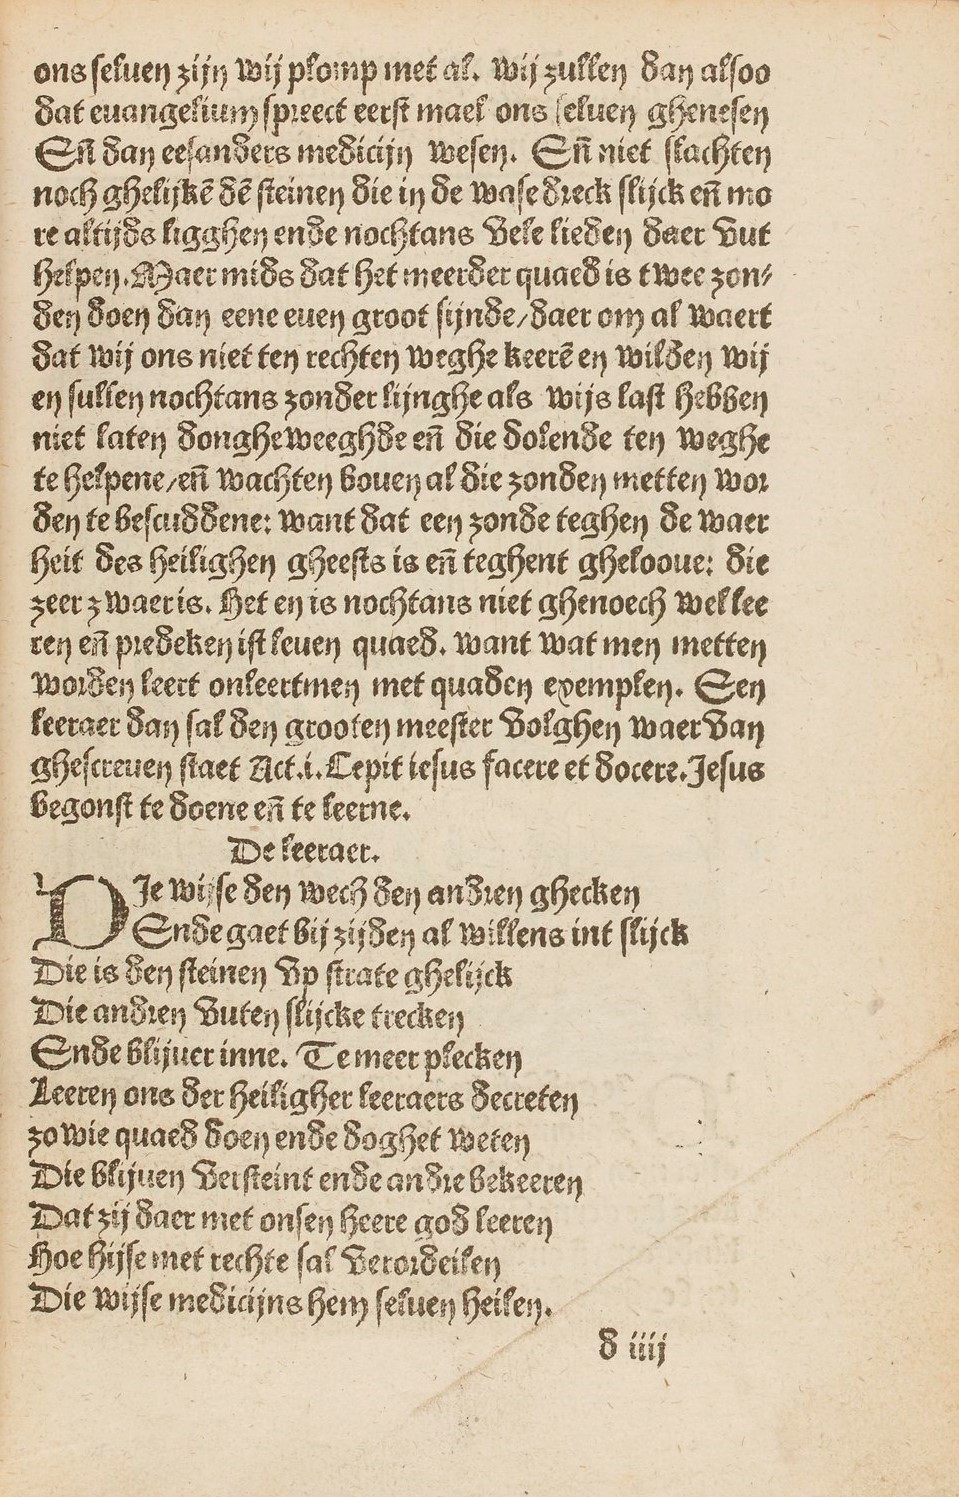 ons seluen zijn wij plomp met al. wij zullen dan alsoo
dat euangelium spreect eerst mael ons seluen ghenesen
Eñ dan eesanders medicijn wesen. Eñ niet slachten
noch ghelijkē dē steinen die in de wase dreck slijck eñ mo
re altijds ligghen ende nochtans vele lieden daer vut
helpen. Maer mids dat het meerder quaed is twee zon⸗
den doen dan eene euen groot sijnde/daer om al waert
dat wij ons niet ten rechten weghe keerē en wilden wij
en sullen nochtans zonder lijnghe als wijs last hebben
niet laten dongheweeghde eñ die dolende ten weghe
te helpene/eñ wachten bouen al die zonden metten wor
den te bescuddene: want dat een zonde teghen de waer
heit des heilighen gheests is eñ teghent ghelooue: die
zeer zwaer is. Het en is nochtans niet ghenoech wel lee
ren eñ predeken ist leuen quaed. want wat men metten
worden leert onleertmen met quaden exemplen. Een
leeraer dan sal den grooten meester volghen waer van
ghescreuen staet Act.i. Cepit iesus facere et docere. Jesus
begonst te doene eñ te leerne.
De leeraer.
DJe wijse den wech den andren ghecken
Ende gaet bij zijden al willens int slijck
Die is den steinen vp strate ghelijck
Die andren vuten slijcke trecken
Ende blijuer inne. Te meer plecken
Leeren ons der heiligher leeraers decreten
zo wie quaed doen ende doghet weten
Die blijuen versteint ende andre bekeeren
Dat zij daer met onsen heere god leeren
Hoe hijse met rechte sal verordeilen
Die wijse medicijns hem seluen heilen.
d iiij